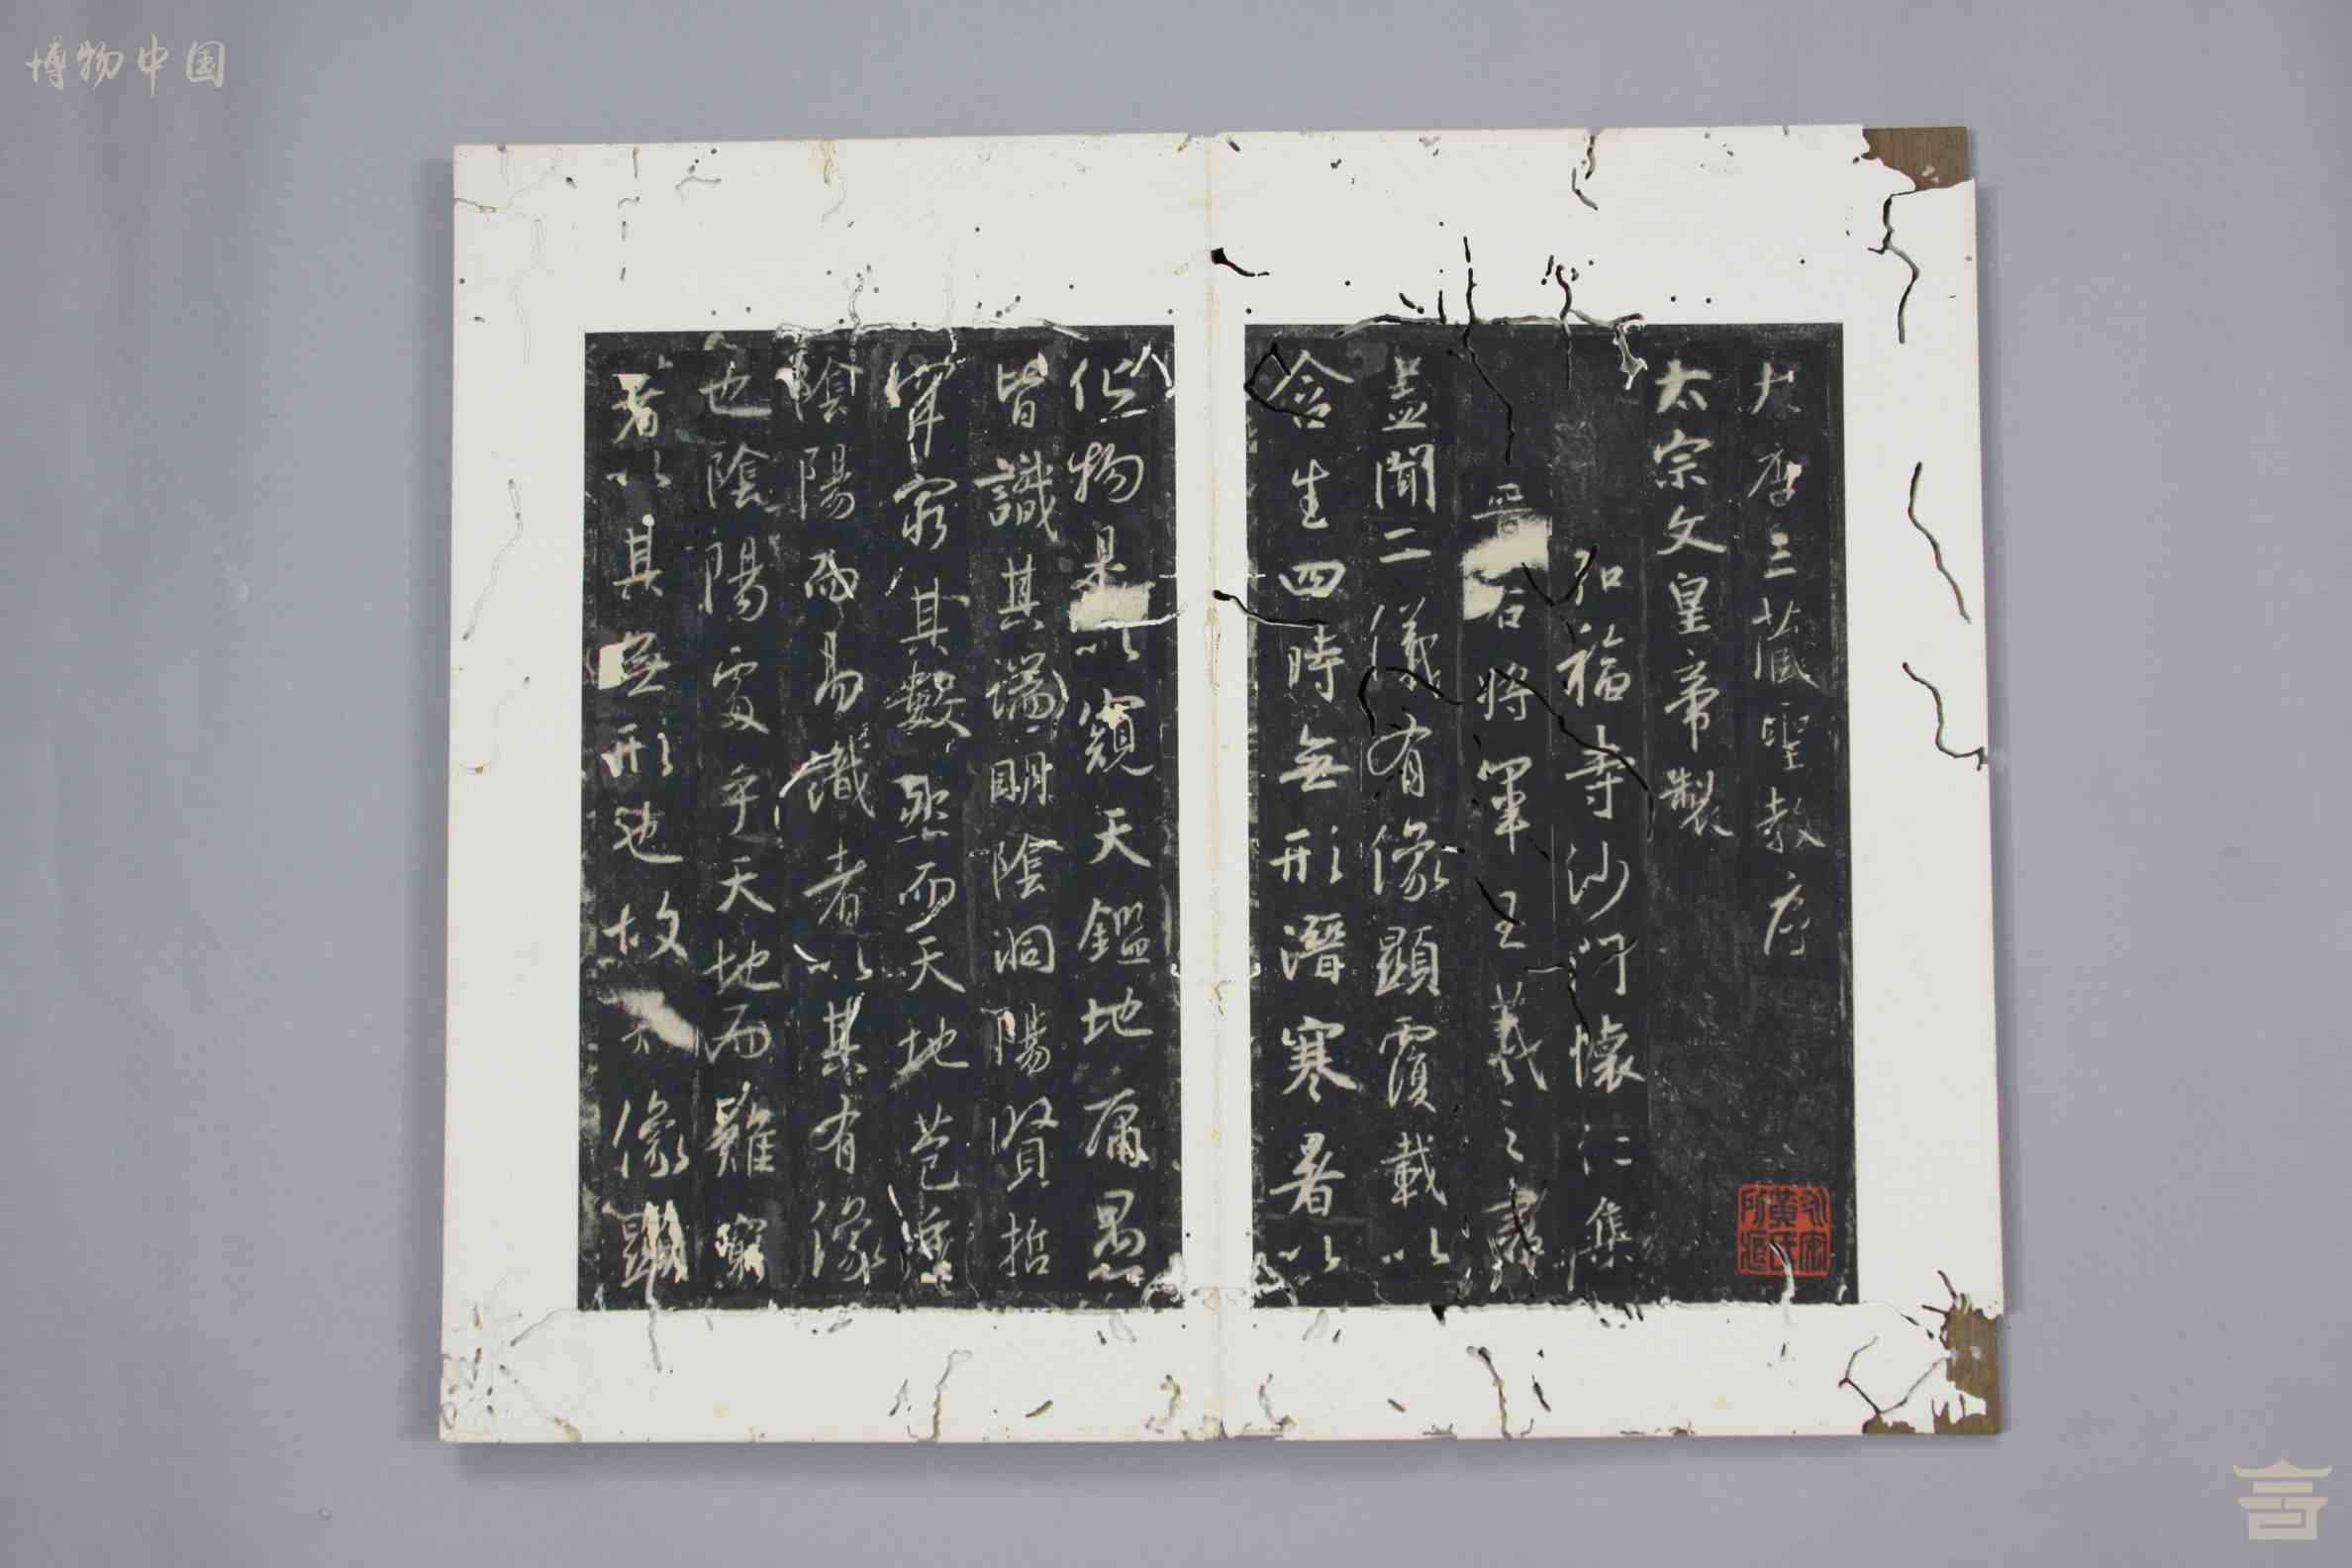 博物中国
大唐三藏聖教序
太宗文皇帝製
弘福寺沙門懷仁集
晉右將軍王羲之書
蓋聞二儀有像顯覆載以
含生四時無形潛寒暑以
化物是以窺天鑑地庸愚
皆識其端明陰洞陽賢哲
罕窮其數然而天地苞乎
陰陽而易識者以其有像
也陰陽處乎天地而難窮
者以其無形也故像顯
黃氏所藏